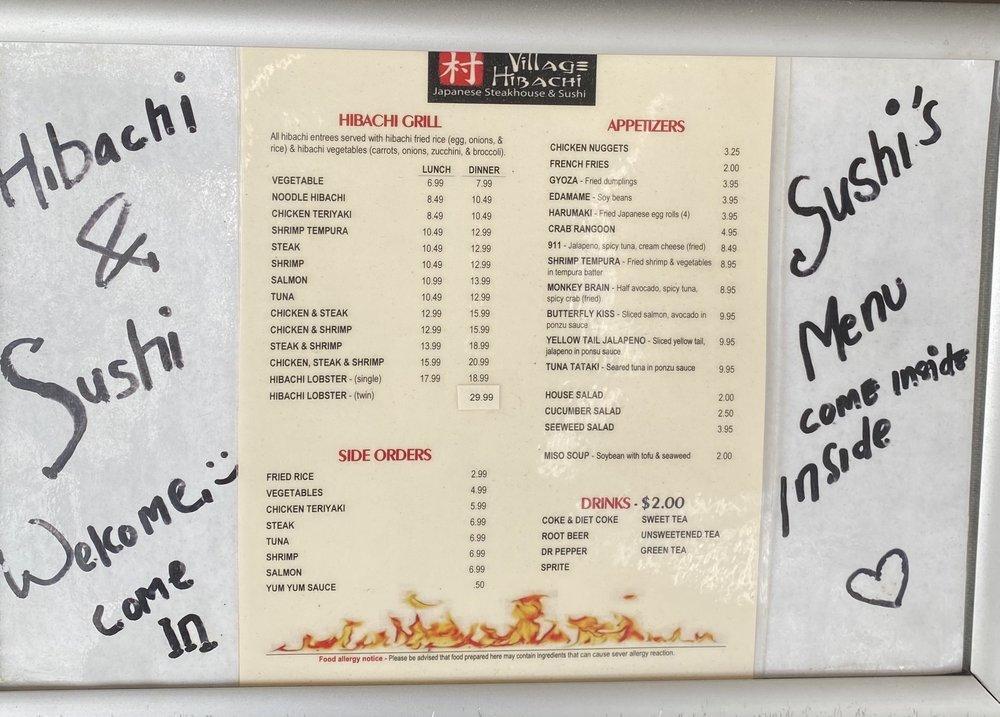 Hibachi
&
Sushi
Welcome :)
come
In
村 Village
Hibachi
Japanese Steakhouse & Sushi
HIBACHI GRILL
All hibachi entrees served with hibachi fried rice (egg, onions, &
rice) & hibachi vegetables (carrots, onions, zucchini, & broccoli).
LUNCH DINNER
VEGETABLE 6.99 7.99
NOODLE HIBACHI 8.49 10.49
CHICKEN TERIYAKI 8.49 10.49
SHRIMP TEMPURA 10.49 12.99
STEAK 10.49 12.99
SHRIMP 10.49 12.99
SALMON 10.99 13.99
TUNA 10.49 12.99
CHICKEN & STEAK 12.99 15.99
CHICKEN & SHRIMP 12.99 15.99
STEAK & SHRIMP 13.99 18.99
CHICKEN, STEAK & SHRIMP 15.99 20.99
HIBACHI LOBSTER - (single) 17.99 18.99
HIBACHI LOBSTER - (twin) 29.99
SIDE ORDERS
FRIED RICE 2.99
VEGETABLES 4.99
CHICKEN TERIYAKI 5.99
STEAK 6.99
TUNA 6.99
SHRIMP 6.99
SALMON 6.99
YUM YUM SAUCE .50
APPETIZERS
CHICKEN NUGGETS 3.25
FRENCH FRIES 2.00
GYOZA - Fried dumplings 3.95
EDAMAME - Soy beans 3.95
HARUMAKI - Fried Japanese egg rolls (4) 3.95
CRAB RANGOON 4.95
911 - Jalapeno, spicy tuna, cream cheese (fried) 8.49
SHRIMP TEMPURA - Fried shrimp & vegetables 8.95
in tempura batter
MONKEY BRAIN - Half avocado, spicy tuna, 8.95
spicy crab (fried)
BUTTERFLY KISS - Sliced salmon, avocado in 9.95
ponzu sauce
YELLOW TAIL JALAPENO - Sliced yellow tail, 9.95
jalapeno in ponsu sauce
TUNA TATAKI - Seared tuna in ponzu sauce 9.95
HOUSE SALAD 2.00
CUCUMBER SALAD 2.50
SEEWEED SALAD 3.95
MISO SOUP - Soybean with tofu & seaweed 2.00
DRINKS - $2.00
COKE & DIET COKE SWEET TEA
ROOT BEER UNSWEETENED TEA
DR PEPPER GREEN TEA
SPRITE
Food allergy notice - Please be advised that food prepared here may contain ingredients that can cause sever allergy reaction.
Sushi's
Menu
come inside
Inside